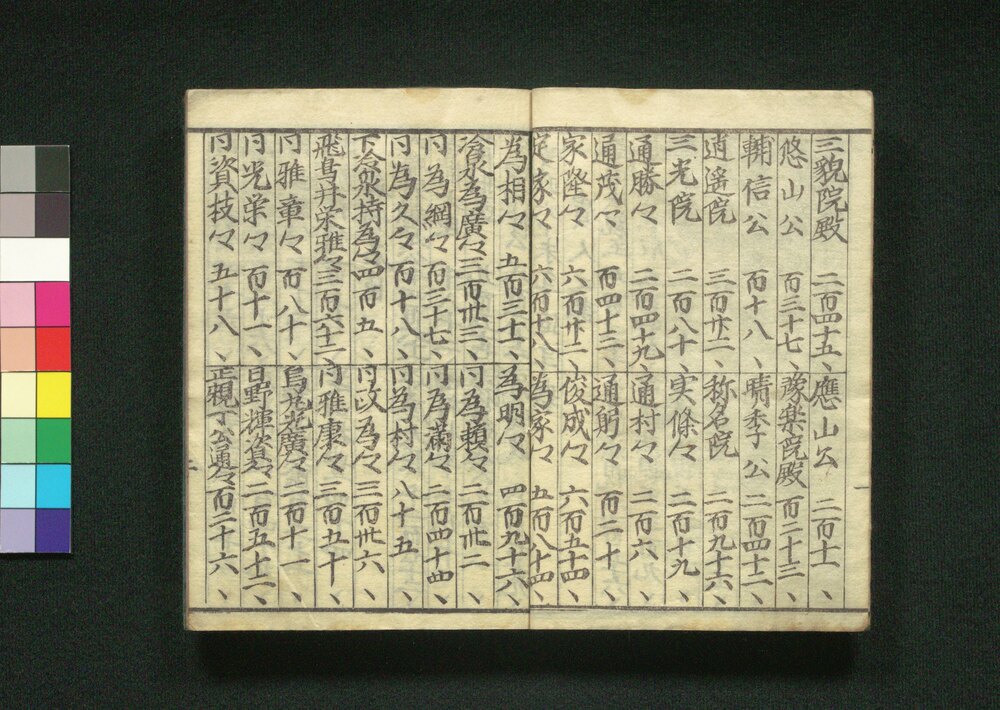 三藐院殿 二百四十五、應山公 二百十一、
悠山公 百三十七、豫楽院殿 百二十三、
輔信公 百十八、晴季公 二百四十二、
逍遥院 三百廿二、称名院 二百九十六、
三光院 二百八十、実條々 二百十九、
通勝々 二百四十九、通村々 二百六、
通茂々 百四十三、通躬々 百二十、
家隆々 六百廿二、俊成々 六百五十四、
定家々 六百十八、為家々 五百八十四、
為相々 五百三十二、為明々 四百九十六、
冷泉為廣々 三百卅三、同為頼々 二百卅二、
同為綱々 百三十七、同為満々 二百四十四、
同為久々 百十八、同為村々 八十五、
下冷泉持為々 四百五、同政為々 三百卅六、
飛鳥井栄雅々 三百六十二、同雅康々 三百五十、
同雅章々 百八十、烏丸光廣々 二百十一、
同光栄々 百十一、日野輝資々 二百五十二、
同資枝々 五十八、正親丁公通々 百二十六、